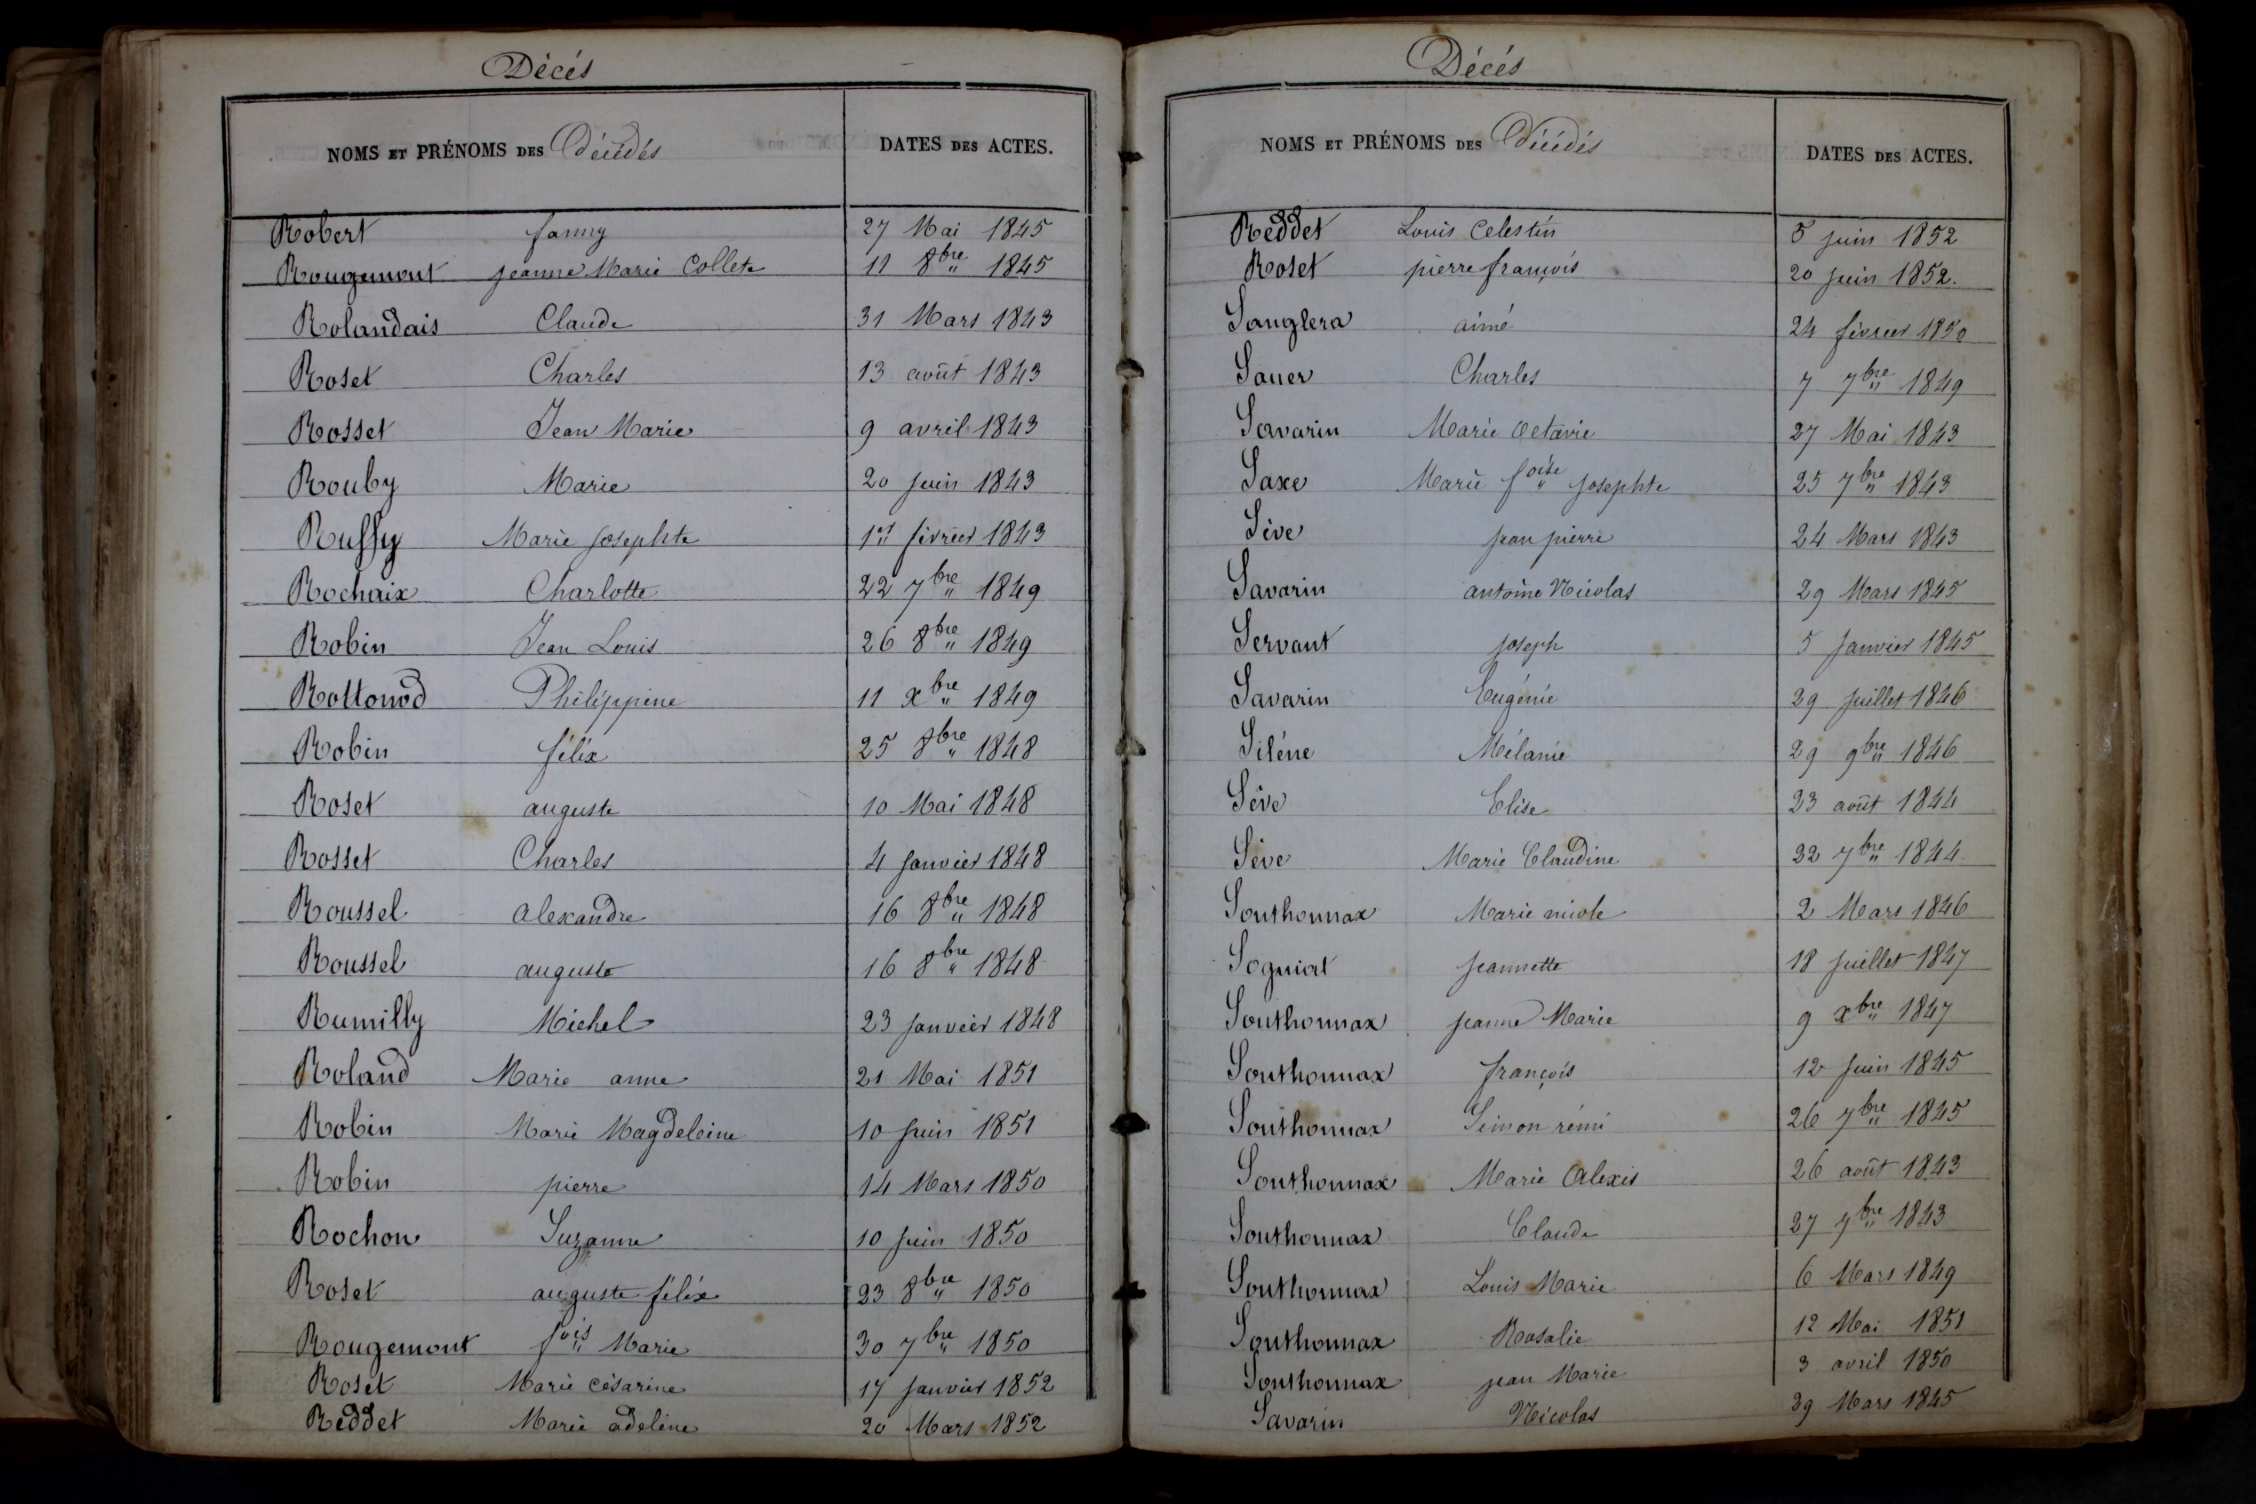 Décés
NOMS ET PRÉNOMS DES Décédés DATES DES ACTES.
Robert fanny 27 Mai 1845
Rougemont jeanne Marie Collete 11 8bre 1845
Rolandais Claude 31 Mars 1843
Roset Charles 13 août 1843
Rosset Jean Marie 9 avril 1843
Rouby Marie 20 juin 1843
Ruffy Marie josephte 1er févrer 1843
Rochaix Charlotte 22 7bre 1849
Robin Jean Louis 26 8bre 1849
Rottonod Philippine 11 xbre 1849
Robin félix 25 8bre 1848
Roset auguste 10 Mai 1848
Rosset Charles 4 janvier 1848
Roussel alexandre 16 8bre 1848
Roussel auguste 16 8bre 1848
Rumilly Michel 23 janvier 1848
Roland Marie anne 21 Mai 1851
Robin Marie Magdeleine 10 juin 1851
Robin pierre 14 Mars 1850
Rochon Suzanne 10 juin 1850
Roset auguste félix 23 8bre 1850
Rougemont fois Marie 30 7bre 1850
Roset Marie césarine 17 janvier 1852
Reddet Marie adeline 20 Mars 1852
Décés
NOMS ET PRÉNOMS DES Décédés DATES DES ACTES.
Reddet Louis Celestin 5 juin 1852
Roset pierre françois 20 juin 1852.
Sanglera aimé 24 févrer 1850
Sauer Charles 7 7bre 1849
Savarin Marie Octavie 27 Mai 1843
Saxe Marie foise josephte 25 7bre 1843
Sève jean pierre 24 Mars 1843
Savarin antoine Nicolas 29 Mars 1845
Servant joseph 5 Janvier 1845
Savarin Eugénie 29 juillet 1846
Siléne Mélanie 29 9bre 1846
Sève Elise 23 août 1844
Sève Marie Claudine 22 7bre 1844
Southonnax Marie nicole 2 Mars 1846
Sogniat jeannette 18 juillet 1847
Southonnax jeanne Marie 9 xbre 1847
Southonnax françois 12 juin 1845
Southonnax Simon rémi 26 7bre 1845
Southonnax Marie Alexis 26 août 1843
Southonnax Claude 27 7bre 1843
Southonnax Louis Marie 6 Mars 1849
Southonnax Rosalie 12 Mai 1851
Southonnax jean Marie 3 avril 1850
Savarin Nicolas 29 Mars 1845